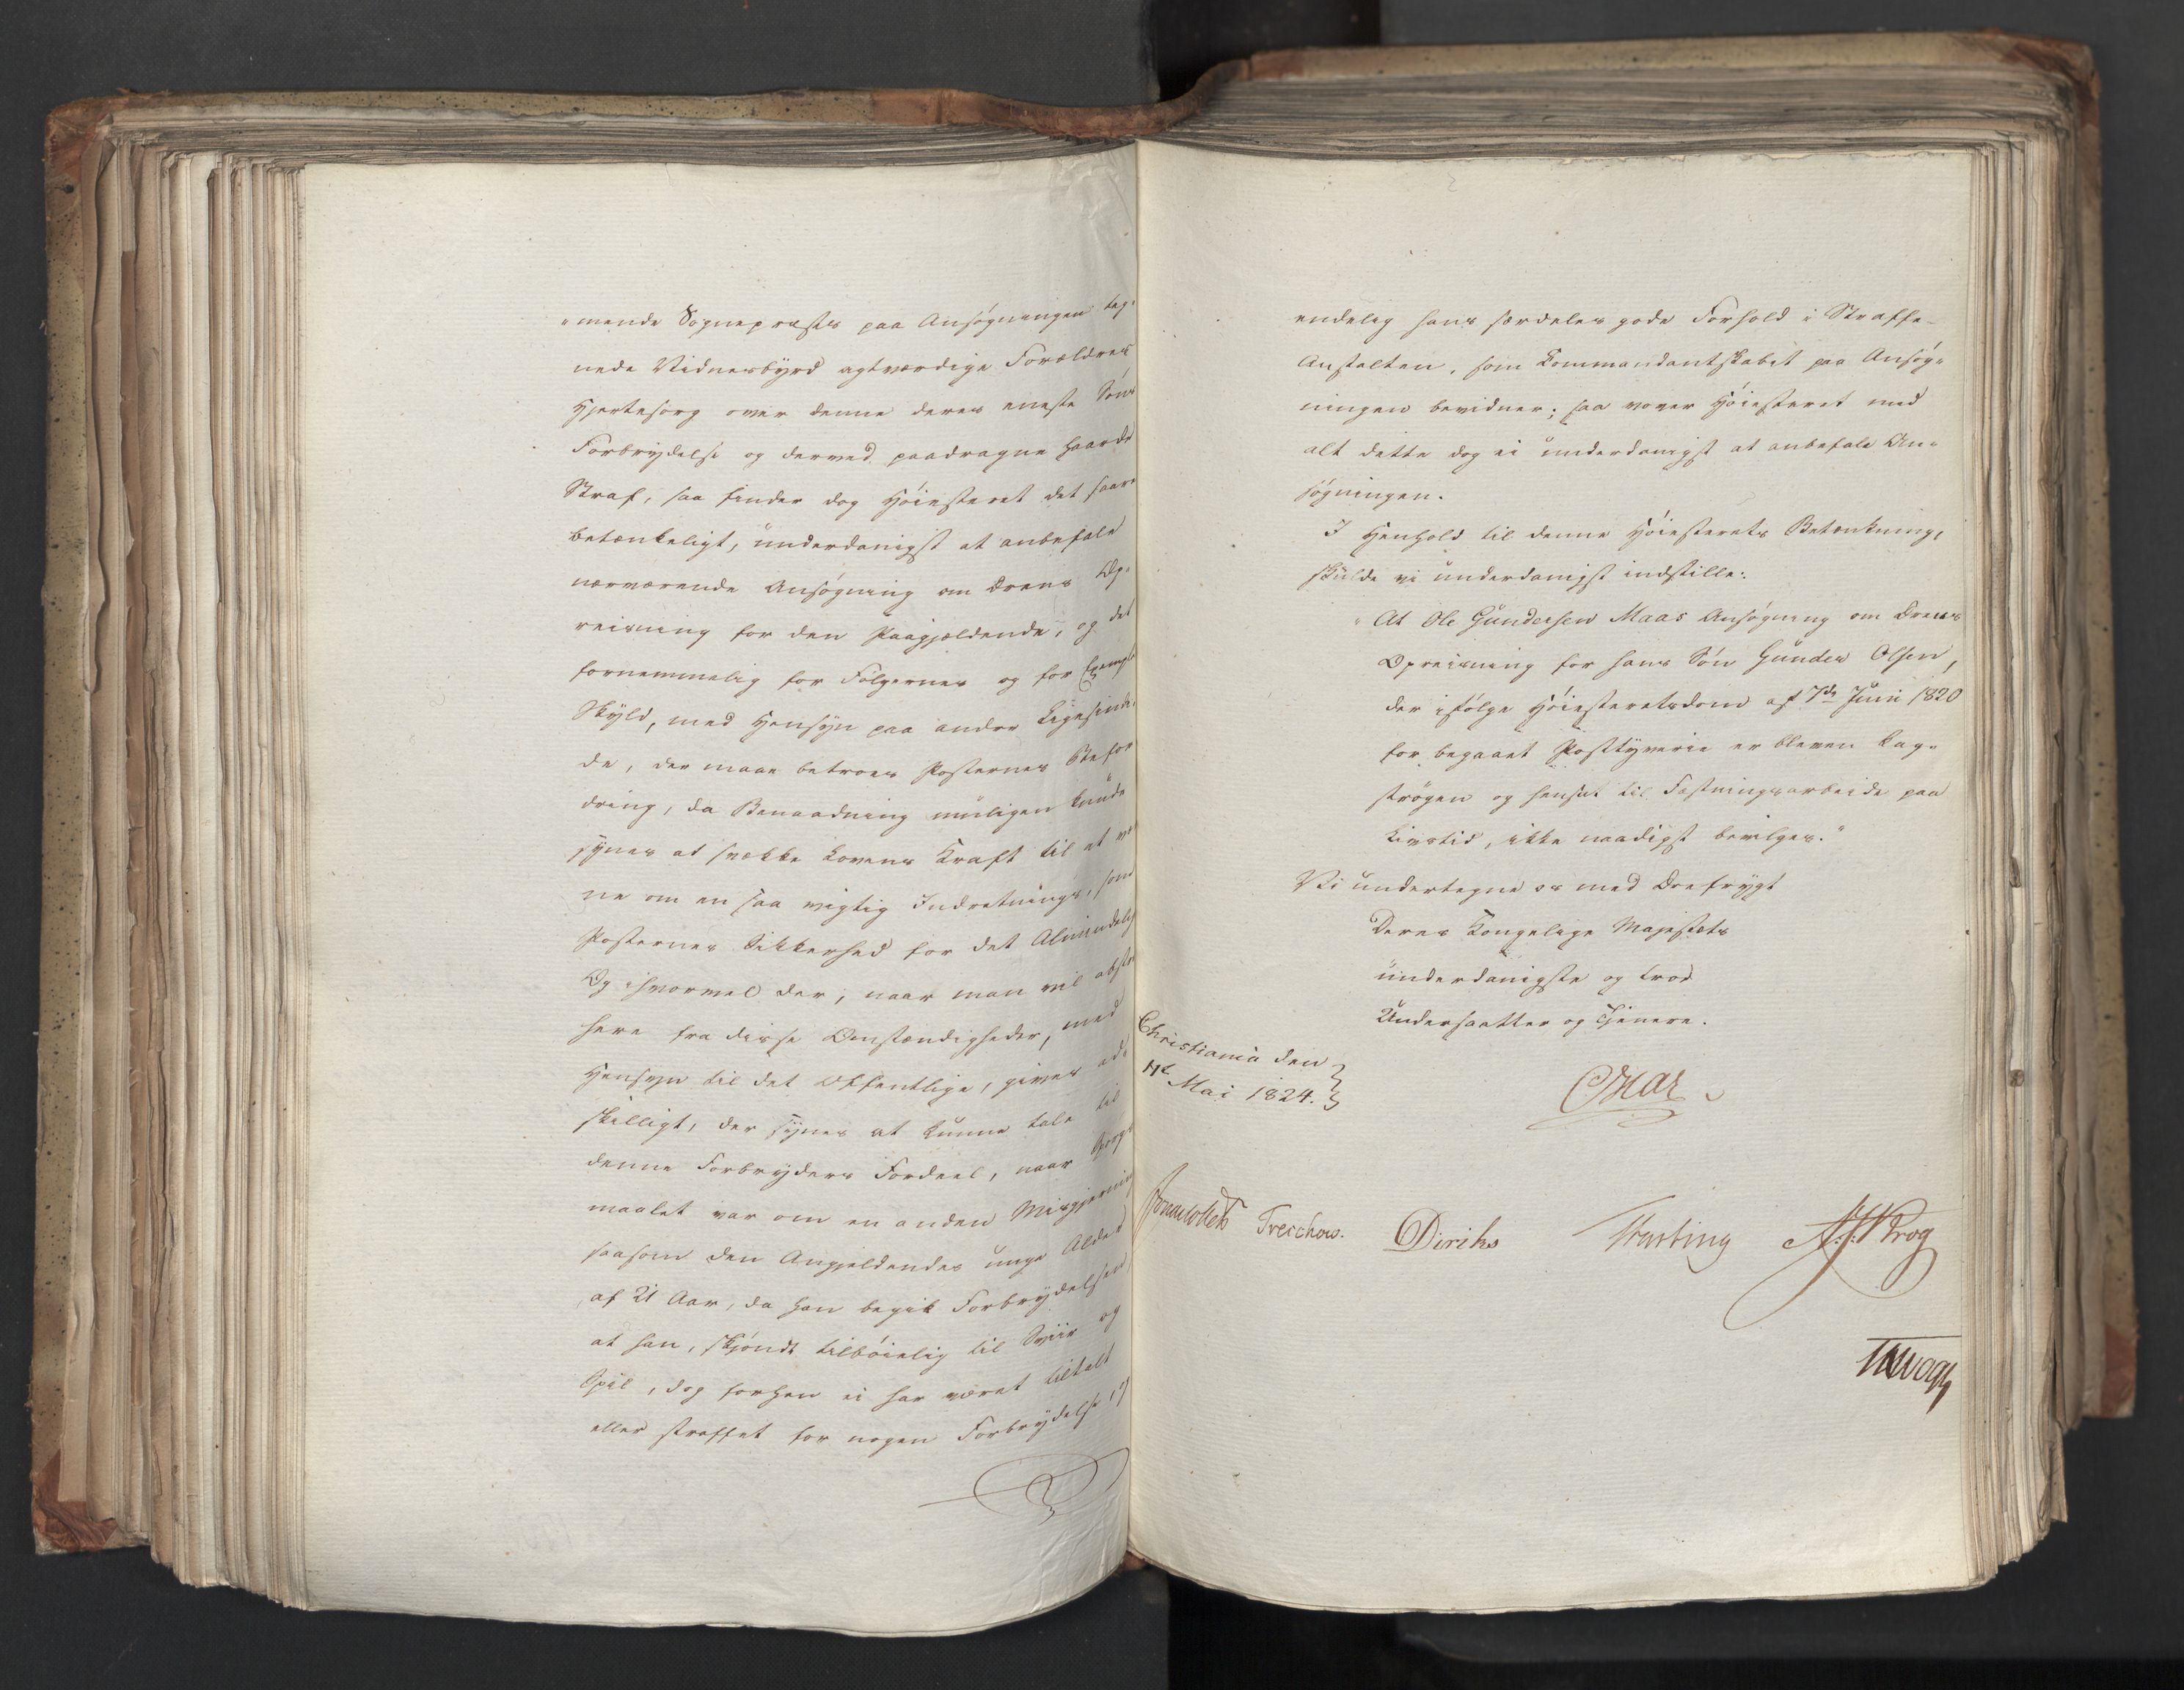 "mende Sognepræsts paa Ansøgningen teg-
nede Vidnesbyrd agtværdige Forældres
Hjertesorg over denne deres eneste Søns
Forbrydelse og derved paadragne haarde
Straf, saa finder dog Høiesteret det saare
betænkeligt, underdanigst at anbefale
nærværende Ansøgning om Ærens Op-
reisning for den Paagjældende, og det
fornemmelig for Følgernes og for Exempls
Skyld, med Hensyn paa andre Ligesinde-
de, der maae betroes Posternes Befor
dring, da Benaadning muligen kunde
synes at svække Lovens Kraft til at vær
ne om en saa vigtig Indretnings, som
Posternes Sikkerhed for det Almindelige
Og ihvorvel der, naar man vil abstra
here fra disse Omstændigheder, med
Hensyn til det Offentlige, gives ad-
skilligt, der synes at kunne tale til
denne Forbryders Fordeel, naar Spørgs
maalet var om en anden Misgjerning
saasom den Angjeldendes unge Alder
af 21 Aar, da han begik Forbrydelsen
at han, skjøndt tilbøielig til Sviir og
Spil, dog forhen ei har været tiltalt
eller straffet for nogen Forbrydelse, og
endelig hans særdeles gode Forhold i Straffe-
Anstalten, som Kommandantskabet paa Ansøg-
ningen bevidner; saa vover Høiesteret med
alt dette dog ei underdanigst at anbefale An-
søgningen.
I Henhold til denne Høiesterets Betænkning,
skulde vi underdanigst indstille:
"At Ole Gundersen Maas Ansøgning om Ærens
Opreisning for hans Søn Gunder Olsen,
der ifølge Høiesteretsdom af 7de Juni 1820
for begaaet Posttyverie er bleven kag-
strøgen og hensat til Fæstningsarbeide paa
Livstid, ikke naadigst bevilges."
Vi undertegne os med Ærefrygt
Deres Kongelige Majestæts
underdanigste og troe
Undersaatter og Tjenere.
Christiania den
Mai 1824.
Sommerfeldt Treschow. Diriks Fasting Krog
Vogt